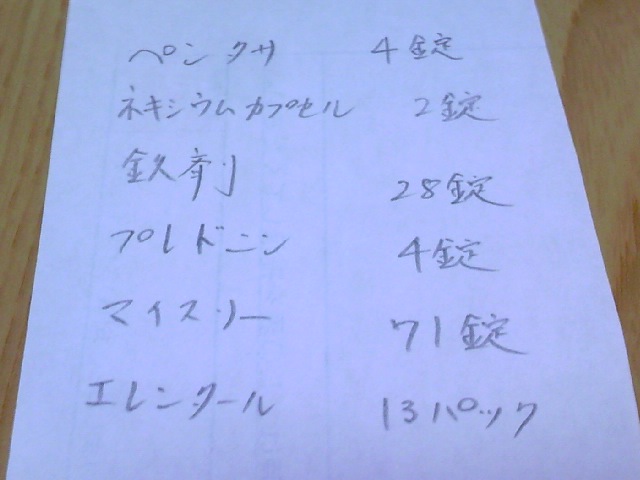 ペンタサ 4錠
ネキシウムカプセル 2錠
鉄剤 28錠
プレドニン 4錠
マイスリー 71錠
エレンタール 13パック